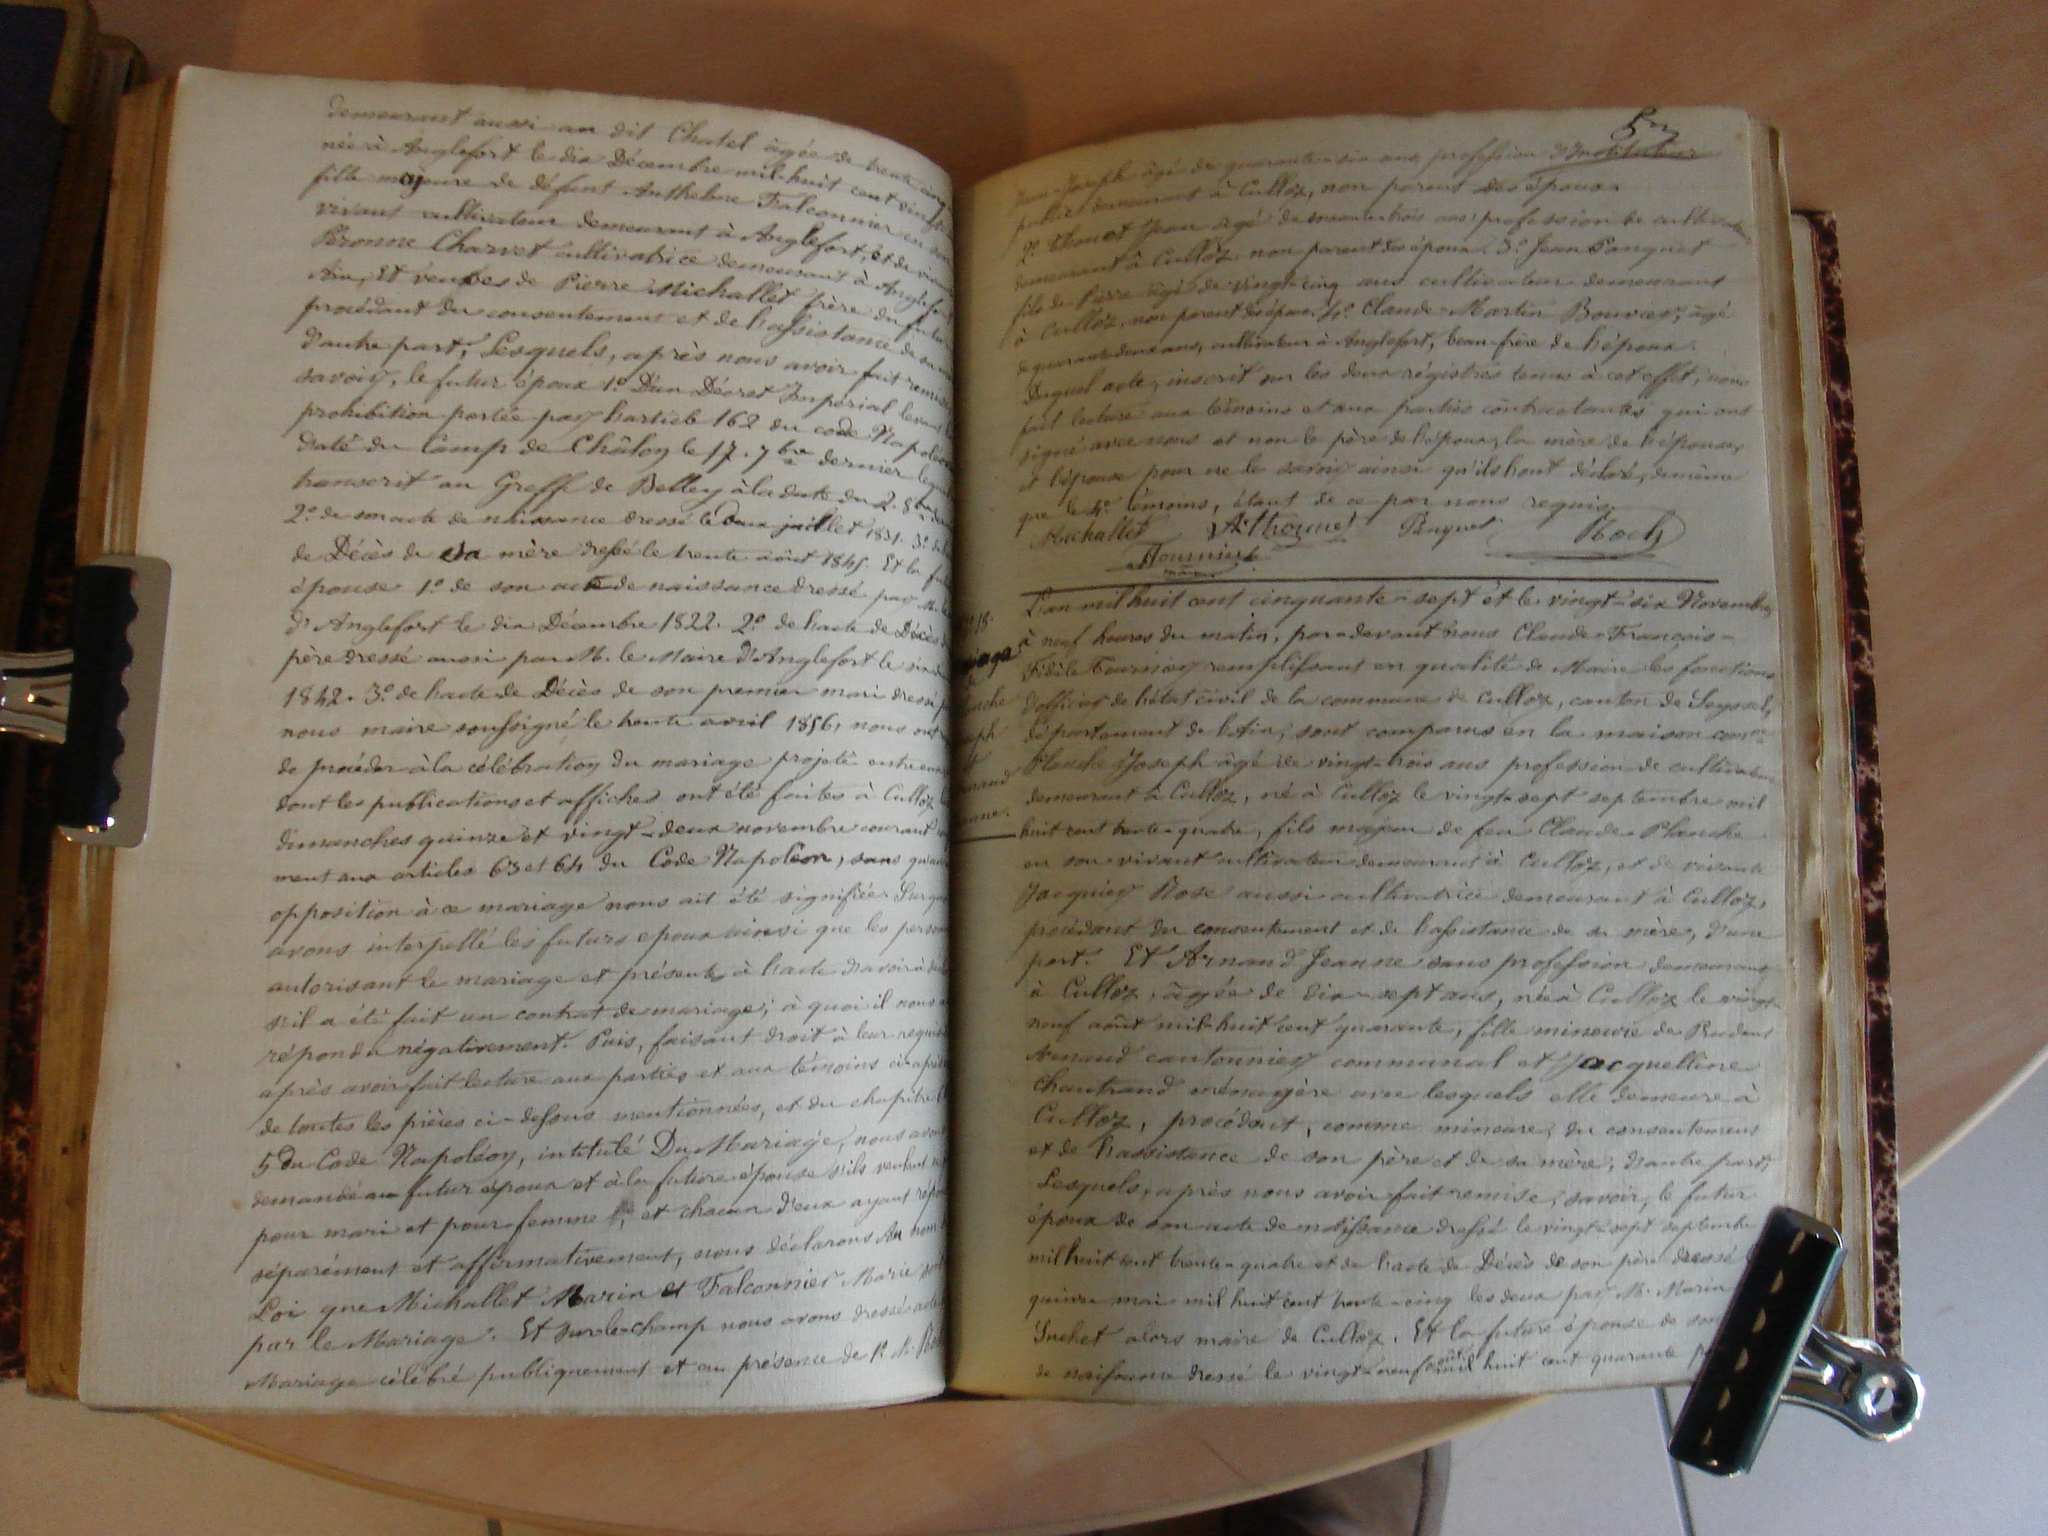 demeurant aussi au dit Chatel âgée de trente cinq
née à Anglefort le dix Décembre mil-huit cent vingt
fille majeure de défunt Anthelme Falconnier en son
vivant cultivateur demeurant à Anglefort, et de vivante
Peronne Charvet cultivatrice demeurant à Anglefort
Ain, Et veuve de Pierre Michallet frère du futur
procédant du consentement et de l'assistance de sa
d'autre part, Lesquels, après nous avoir fait remise
savoir, le futur époux 1º D'un Décret Impérial levant
prohibition portée par l'article 162 du code Napoléon
daté du Camp de Châlon le 17. 7bre dernier lequel
transcrit au Greffe de Belley à la date du 2. 8bre
2º de son acte de naissance dressé le deux juillet 1831. 3º
de Décès de sa mère dressé le trente août 1845. Et la future
épouse 1º de son acte de naissance dressé par M. le
d'Anglefort le dix Décembre 1822. 2º de l'acte de Décès de
père dressé aussi par M. le Maire d'Anglefort le
1842. 3º de l'acte de Décès de son premier mari dressé par
nous maire soussigné le trente avril 1856, nous ont
de procéder à la célébration du mariage projeté entre eux
dont les publications et affiches ont été faites à Culloz les
dimanches quinze et vingt-deux novembre courant
ment aux articles 63 et 64 du Code Napoléon, sans qu'aucune
opposition à ce mariage nous ait été signifiée. Sur quoi
avons interpellé les futurs epoux ainsi que les personnes
autorisant le mariage et présents à l'acte d'avoir à
s'il a été fait un contrat de mariage; à quoi il nous a
répondu négativement. Puis, faisant droit à leur requisition
après avoir fait lecture aux parties et aux témoins ci-après
de toutes les pièces ci-dessus mentionnées, et du chapitre
5 du Code Napoléon, intitulé Du Mariage, nous avons
demandé au futur époux et à la future épouse s'ils veulent se
pour mari et pour femme, et chacun d'eux ayant répondu
séparément et affirmativement, nous déclarons Au nom de la
Loi que Michallet Marin et Falconnier Marie sont
par le Mariage. Et sur-le-champ nous avons dressé acte
Mariage célébré publiquement et en présence de 1º M.
5
Jean-Joseph âgé de quarante-six ans, profession d'Instituteur
public demeurant à Culloz, non parent des époux.
2º Thouet Jean âgé de soixante-trois ans, profession de cultivateur
demeurant à Culloz non parent des époux. 3º Jean Panguet
fils de Pierre âgé de vingt-cinq ans cultivateur demeurant
à Culloz, non parent des époux. 4º Claude-Martin Bouvier, âgé
de quarante deux ans, cultivateur à Anglefort, beau-frère de l'époux.
Duquel acte, inscrit sur les deux régistres tenus à cet effet, nous
fait lecture aux témoins et aux parties contractantes qui ont
signé avec nous et non le père de l'époux, la mère de l'épouse,
et l'épouse pour ne le savoir ainsi qu'ils l'ont déclaré, demême
que le 4º témoins, étant de ce par nous requis.
Michallet Panguet Roch
Fournier
L'an mil huit cent cinquante-sept et le vingt-six Novembre
à neuf heures du matin, par-devant nous Claude-François-
Fidèle Fournier remplissant en qualité de Maire les fonctions
d'officier de l'état civil de la commune de Culloz, canton de Seyssel,
département de l'Ain, sont comparus en la maison comm.
Planche Joseph âgé de vingt-trois ans profession de cultivateur
demeurant à Culloz, né à Culloz le vingt-sept septembre mil
huit cent trente-quatre, fils majeur de feu Claude Planche
en son vivant cultivateur demeurant à Culloz, et de vivante
Jacquier Rose aussi cultivatrice demeurant à Culloz,
procédant du consentement et de l'assistance de sa mère, d'une
part. Et Arnaud Jeanne sans profession demeurant
à Culloz, âgée de dix-sept ans, née à Culloz le vingt-
neuf août mil-huit cent quarante, fille mineure de
Arnaud cantonnier communal et Jacquelline
Chautrand ménagère avec lesquels elle demeure à
Culloz, procédant, comme mineure, du consentement
et de l'assistance de son père et de sa mère, d'autre part,
Lesquels, après nous avoir fait remise, savoir, le futur
époux de son acte de naissance dressé le vingt-sept septembre
mil huit cent trente-quatre et de l'acte de Décès de son père dressé
quinze mai mil huit cent trente-cinq les deux par M. Marin
Suchet alors maire de Culloz. Et la future épouse de son
de naissance dressé le vingt-neuf août mil huit cent quarante